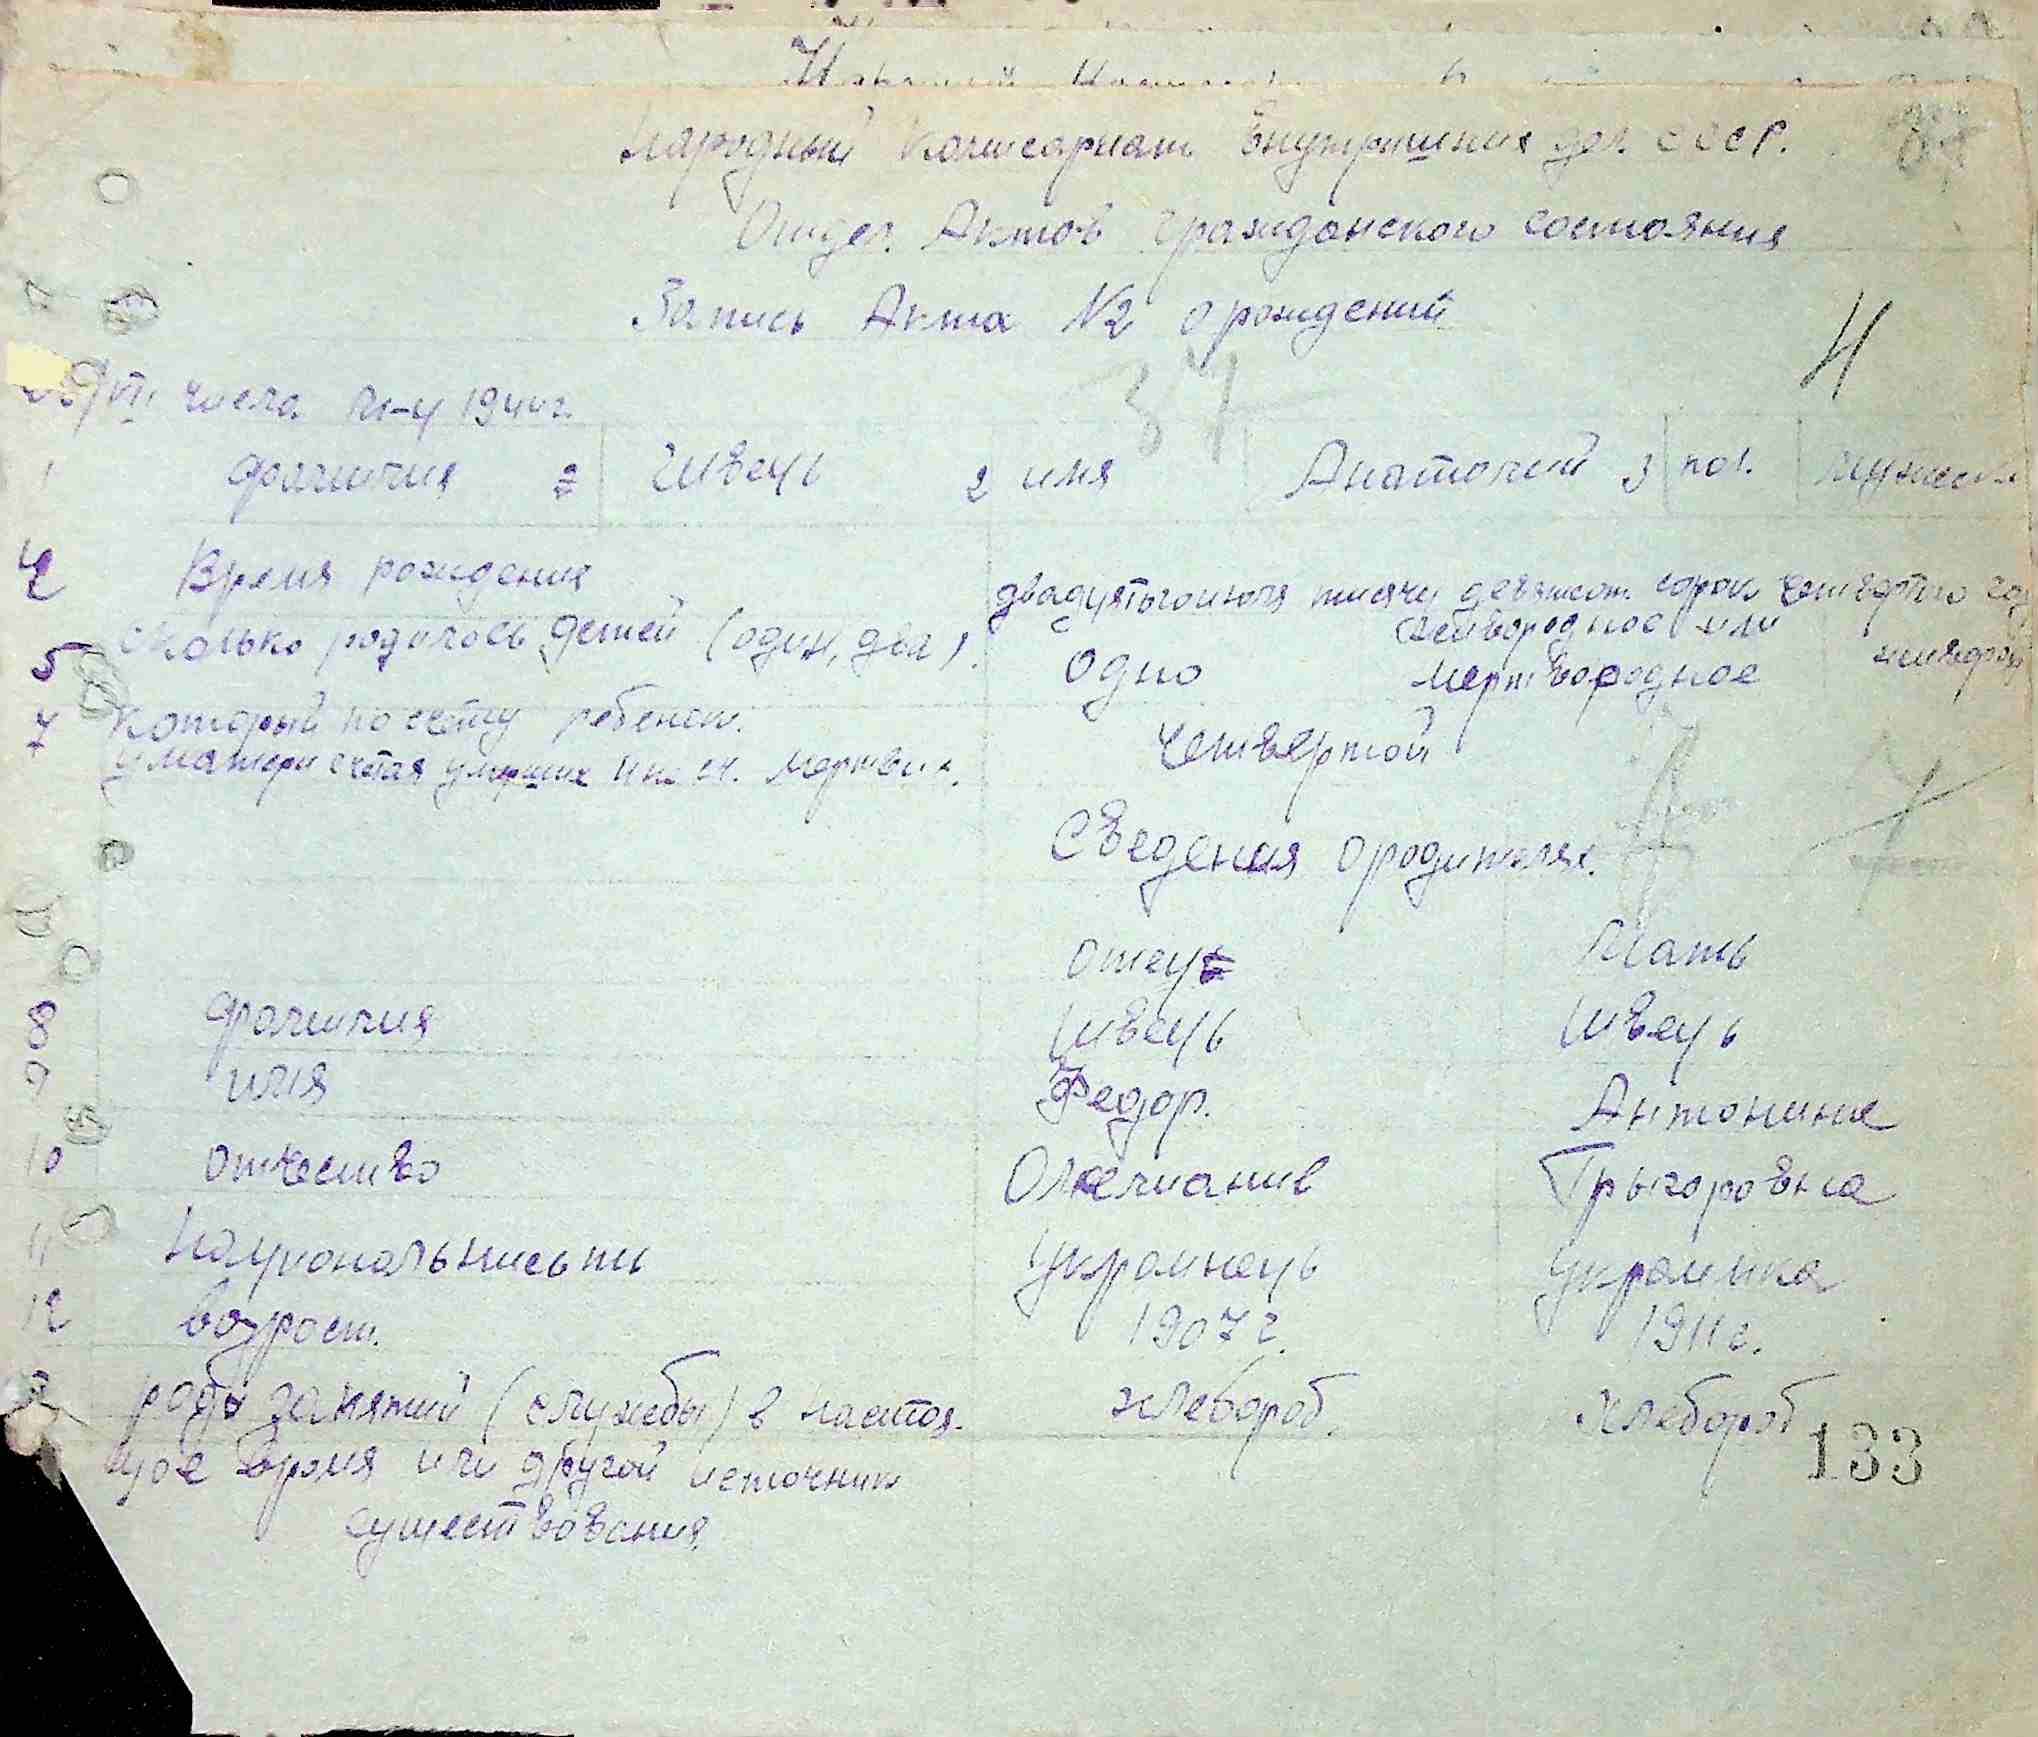 Народный Комисариат Внутришних дел СССР.
Отдел Актов гражданского состояния
Запись Акта №2 о рождений
37
числа м-ц 194 г.
1 фамилия Швець 2 имя Анатолий 3 пол. мужеск
4 Время рождения двадцятого июля тисячу девятсот сорок четвертого год
5 сколько родилось детей (один, два). Одно живородное или мертвородное живород
7 Который по счёту ребенок. четвертой
у матери счтая умерших мертвих.
Сведения о родителях.
Отец Мать
8 фамилия Швець Швець
9 имя Федор. Антонина
10 отчество Григоровна
11 Национальнисьть Украинець Украинка
12 возраст. 1907 г. 1911 г.
родъ занятий (службы) в настоя- хлебороб. хлебороб
щое время или другой источник
существования.
133